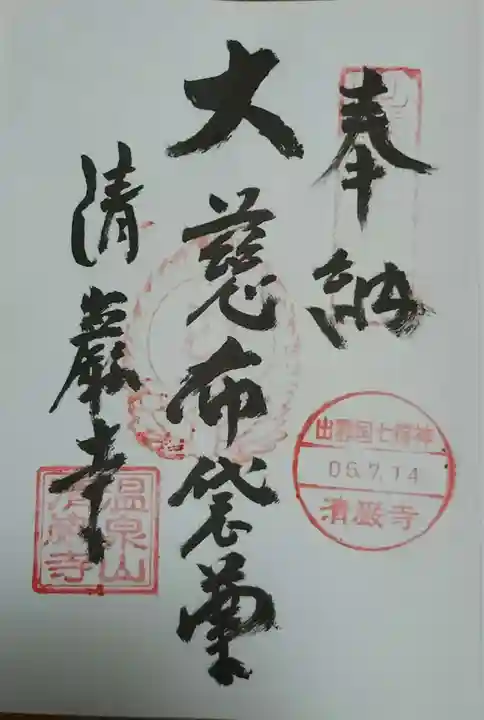 奉納
大慈布袋尊
清巖寺
出雲国七福神
05.7.14
清巌寺
温泉山
清巌寺